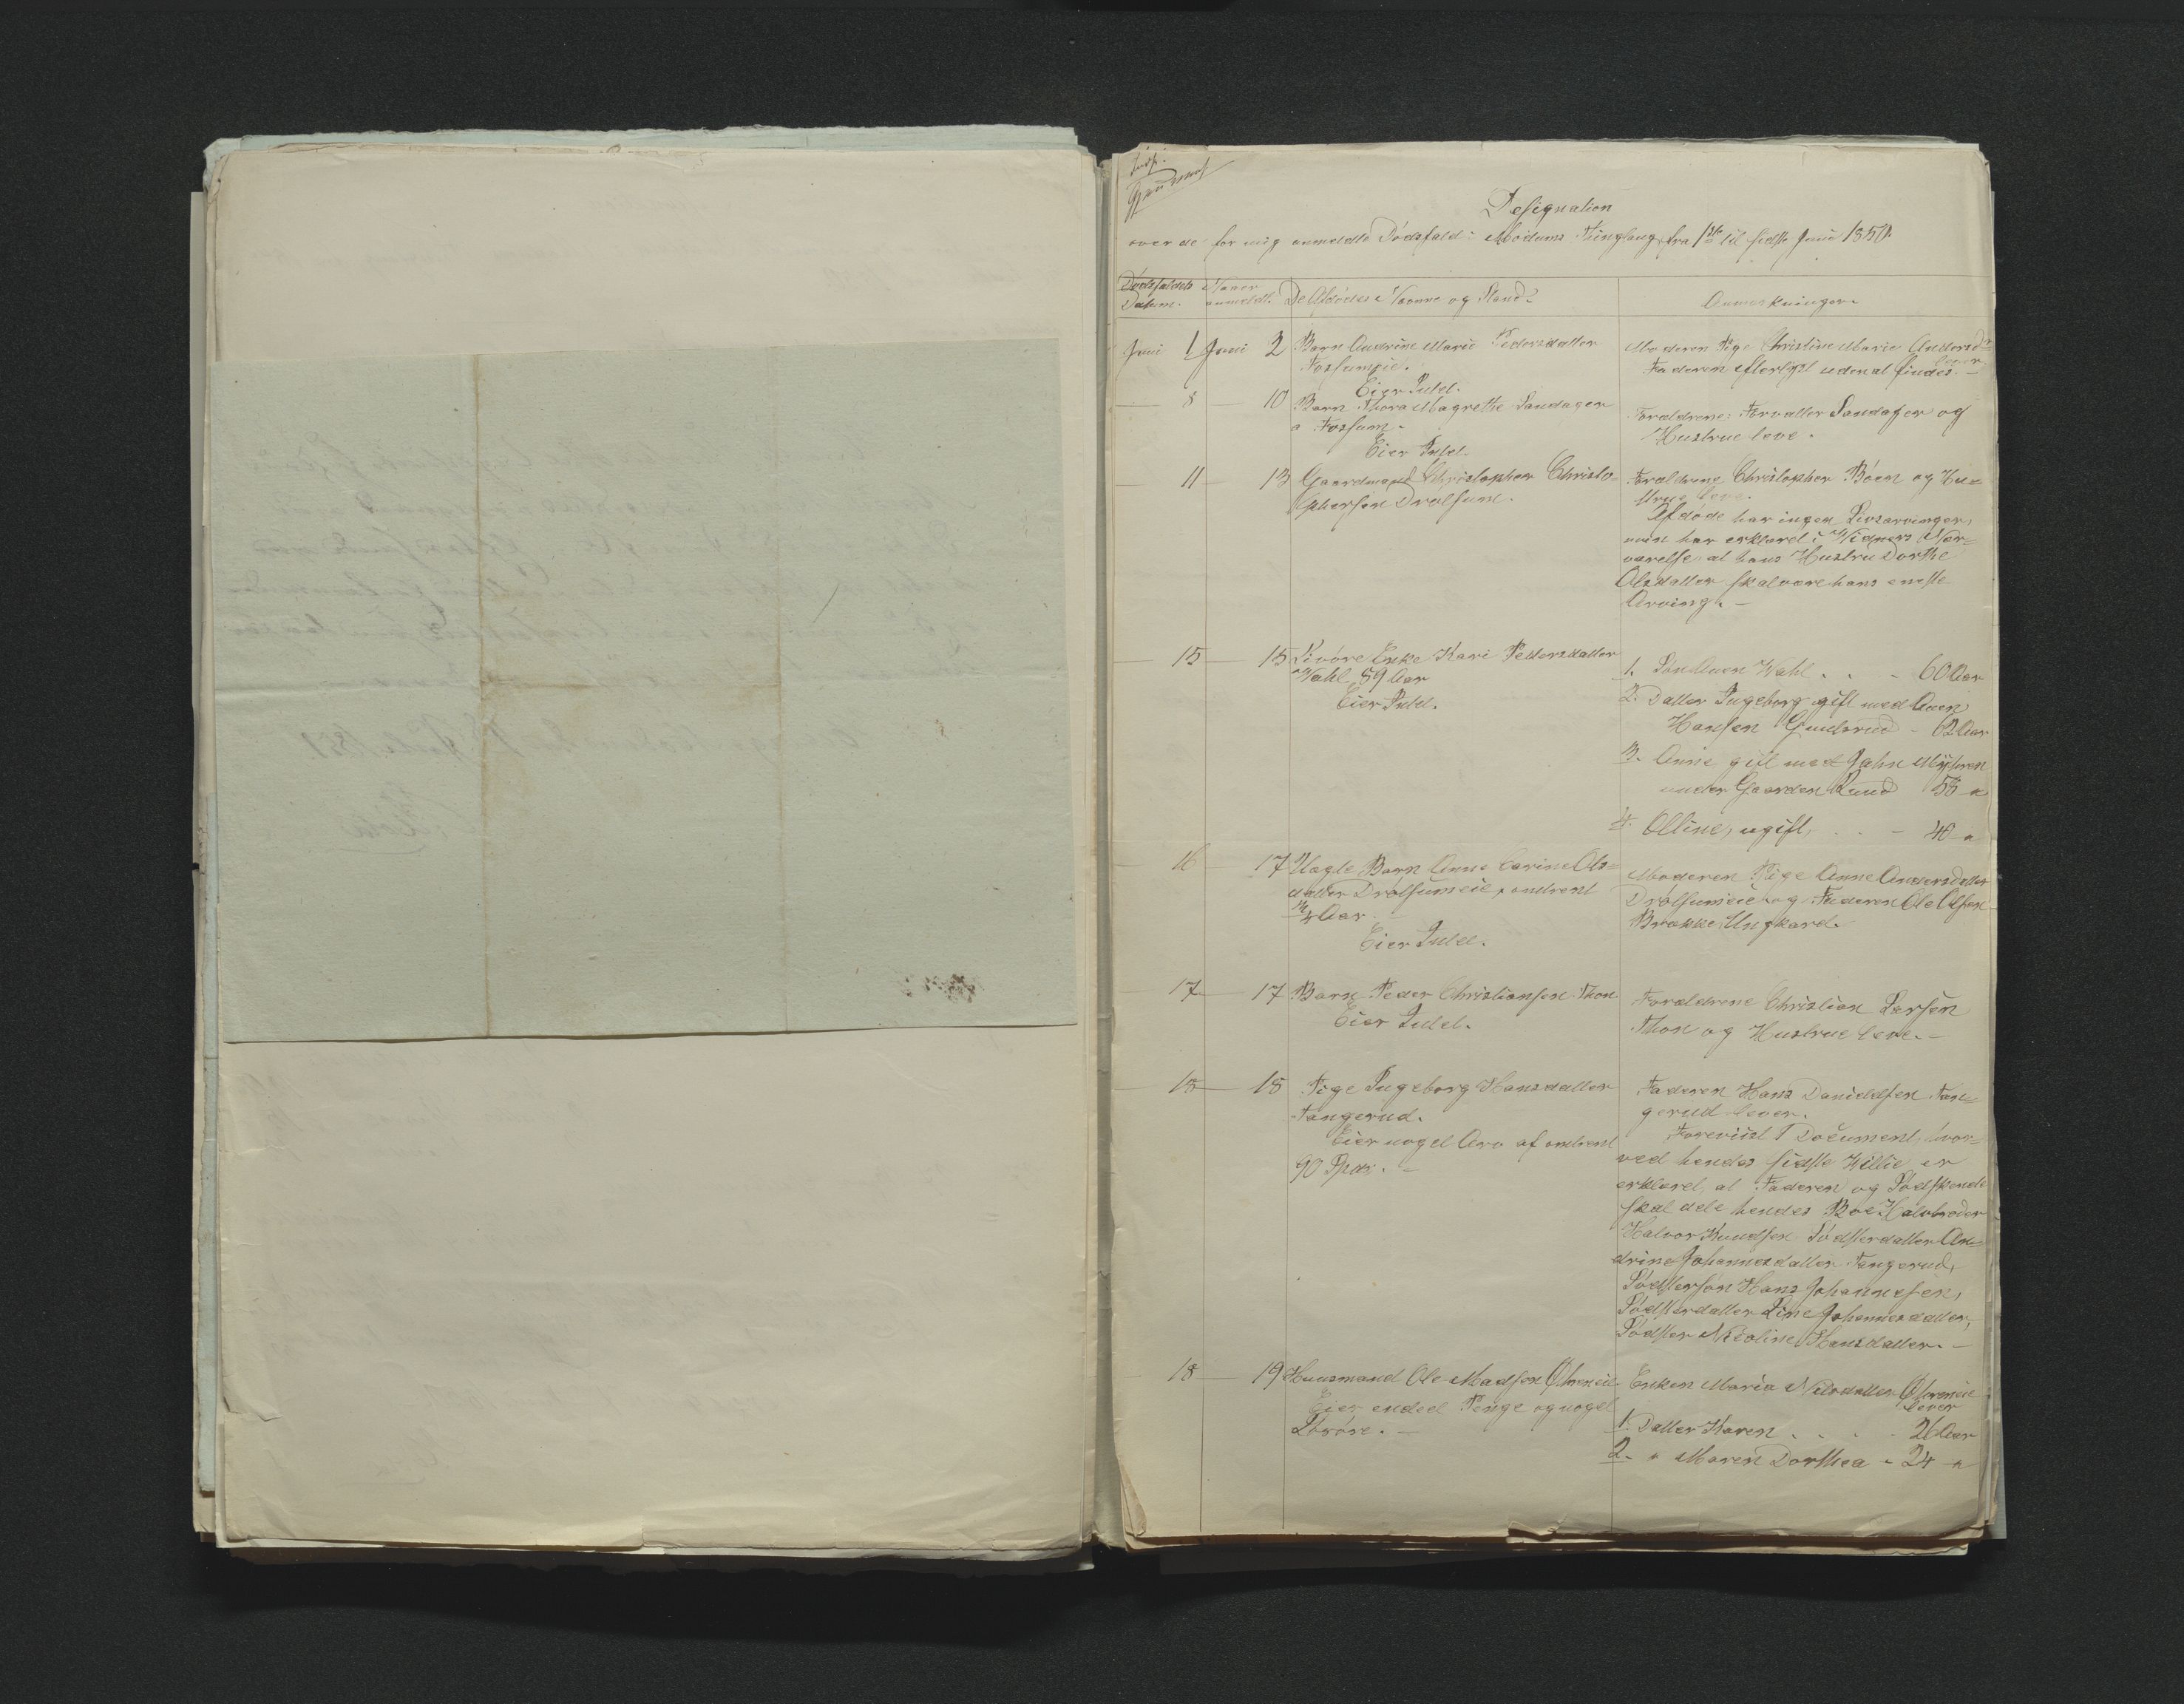 Designation
over de for mig anmeldte Dödsfald i Modums Tinglaug fra 1ste til sidste Juni 1850.
Dödsfaldets Datum.
Naar anmeldt.
De Afdödes Navne og Stand.
Anmerkninger.
Juni 1 Juni 2 Barn Andrine Marie Pedersdatter
Fossumeie.
Eier Intet.
Moderen Pige Christine Marie Andersd.
lever
Faderen efterlyst uden at findes. –
– 8 – 10 Barn Thora Magrethe Sandager
a Fossum.
Eier Intet.
Forældrene: Forvalter Sandager og
Hustrue leve.
– 11 – 13 Gaardmand Christopher Christo=
phersen Drolsum.
Forældrene Christopher Böen og Hu=
strue leve.
Afdöde har ingen Livsarvinger,
men har erklæret i Vidners Nær=
værelse at hans Hustru Dorthe
Olsdatter skal være hans eneste
Arving. –
– 15 – 15 Livöre Enke Kari Pedersdatter
Wahl 89 Aar
Eier Intet.
1. Sön Even Wahl . . - 60 Aar
2. Datter Ingeborg gift med Even
Hansen Gunbrud - 62 Aar
3. Anne gift med John Myhren
under Gaarden Ruud 58 "
4. Olline, ugift, . . - 40 "
– 16 – 17 Uægte Barn Anne Carine Ols=
datter Drolsumeie, omtrent
3/4 Aar
Eier Intet.
Moderen Pige Anne Andersdatter
Drolsumeie og Faderen Ole Olsen
Brække, Ungkard.
– 17 – 17 Barn Peder Christiansen Thon
Eier Intet.
Forældrene Christian Larsen
Thon og Hustrue leve. –
– 18 – 18 Pige Ingeborg Hansdatter
Tangerud.
Eier noget Arv af omtrent
90 Spdr. –
Faderen Hans Danielsen Tan=
gerud lever.
Foreviist 1 Document, hvor=
ved hendes sidste Willie er
erklæret, at Faderen og Södskende
skal dele hendes Boe Halvbroder
Halvor Knudsen Södsterdatter An=
drine Johannesdatter Tangerud,
Södstersön Hans Johannesen,
Södsterdatter Line Johannesdatter,
Södster Nicoline Hansdatter. –
– 18 – 19 Huusmand Ole Madsen Øhreneie
Eier endeel Penge og noget
Lösöre. –
Enken Maria Nilsdatter Øhreneie
lever
1. Datter Karen . . . - 26 Aar
2. " Maren Dorthea - 24 "